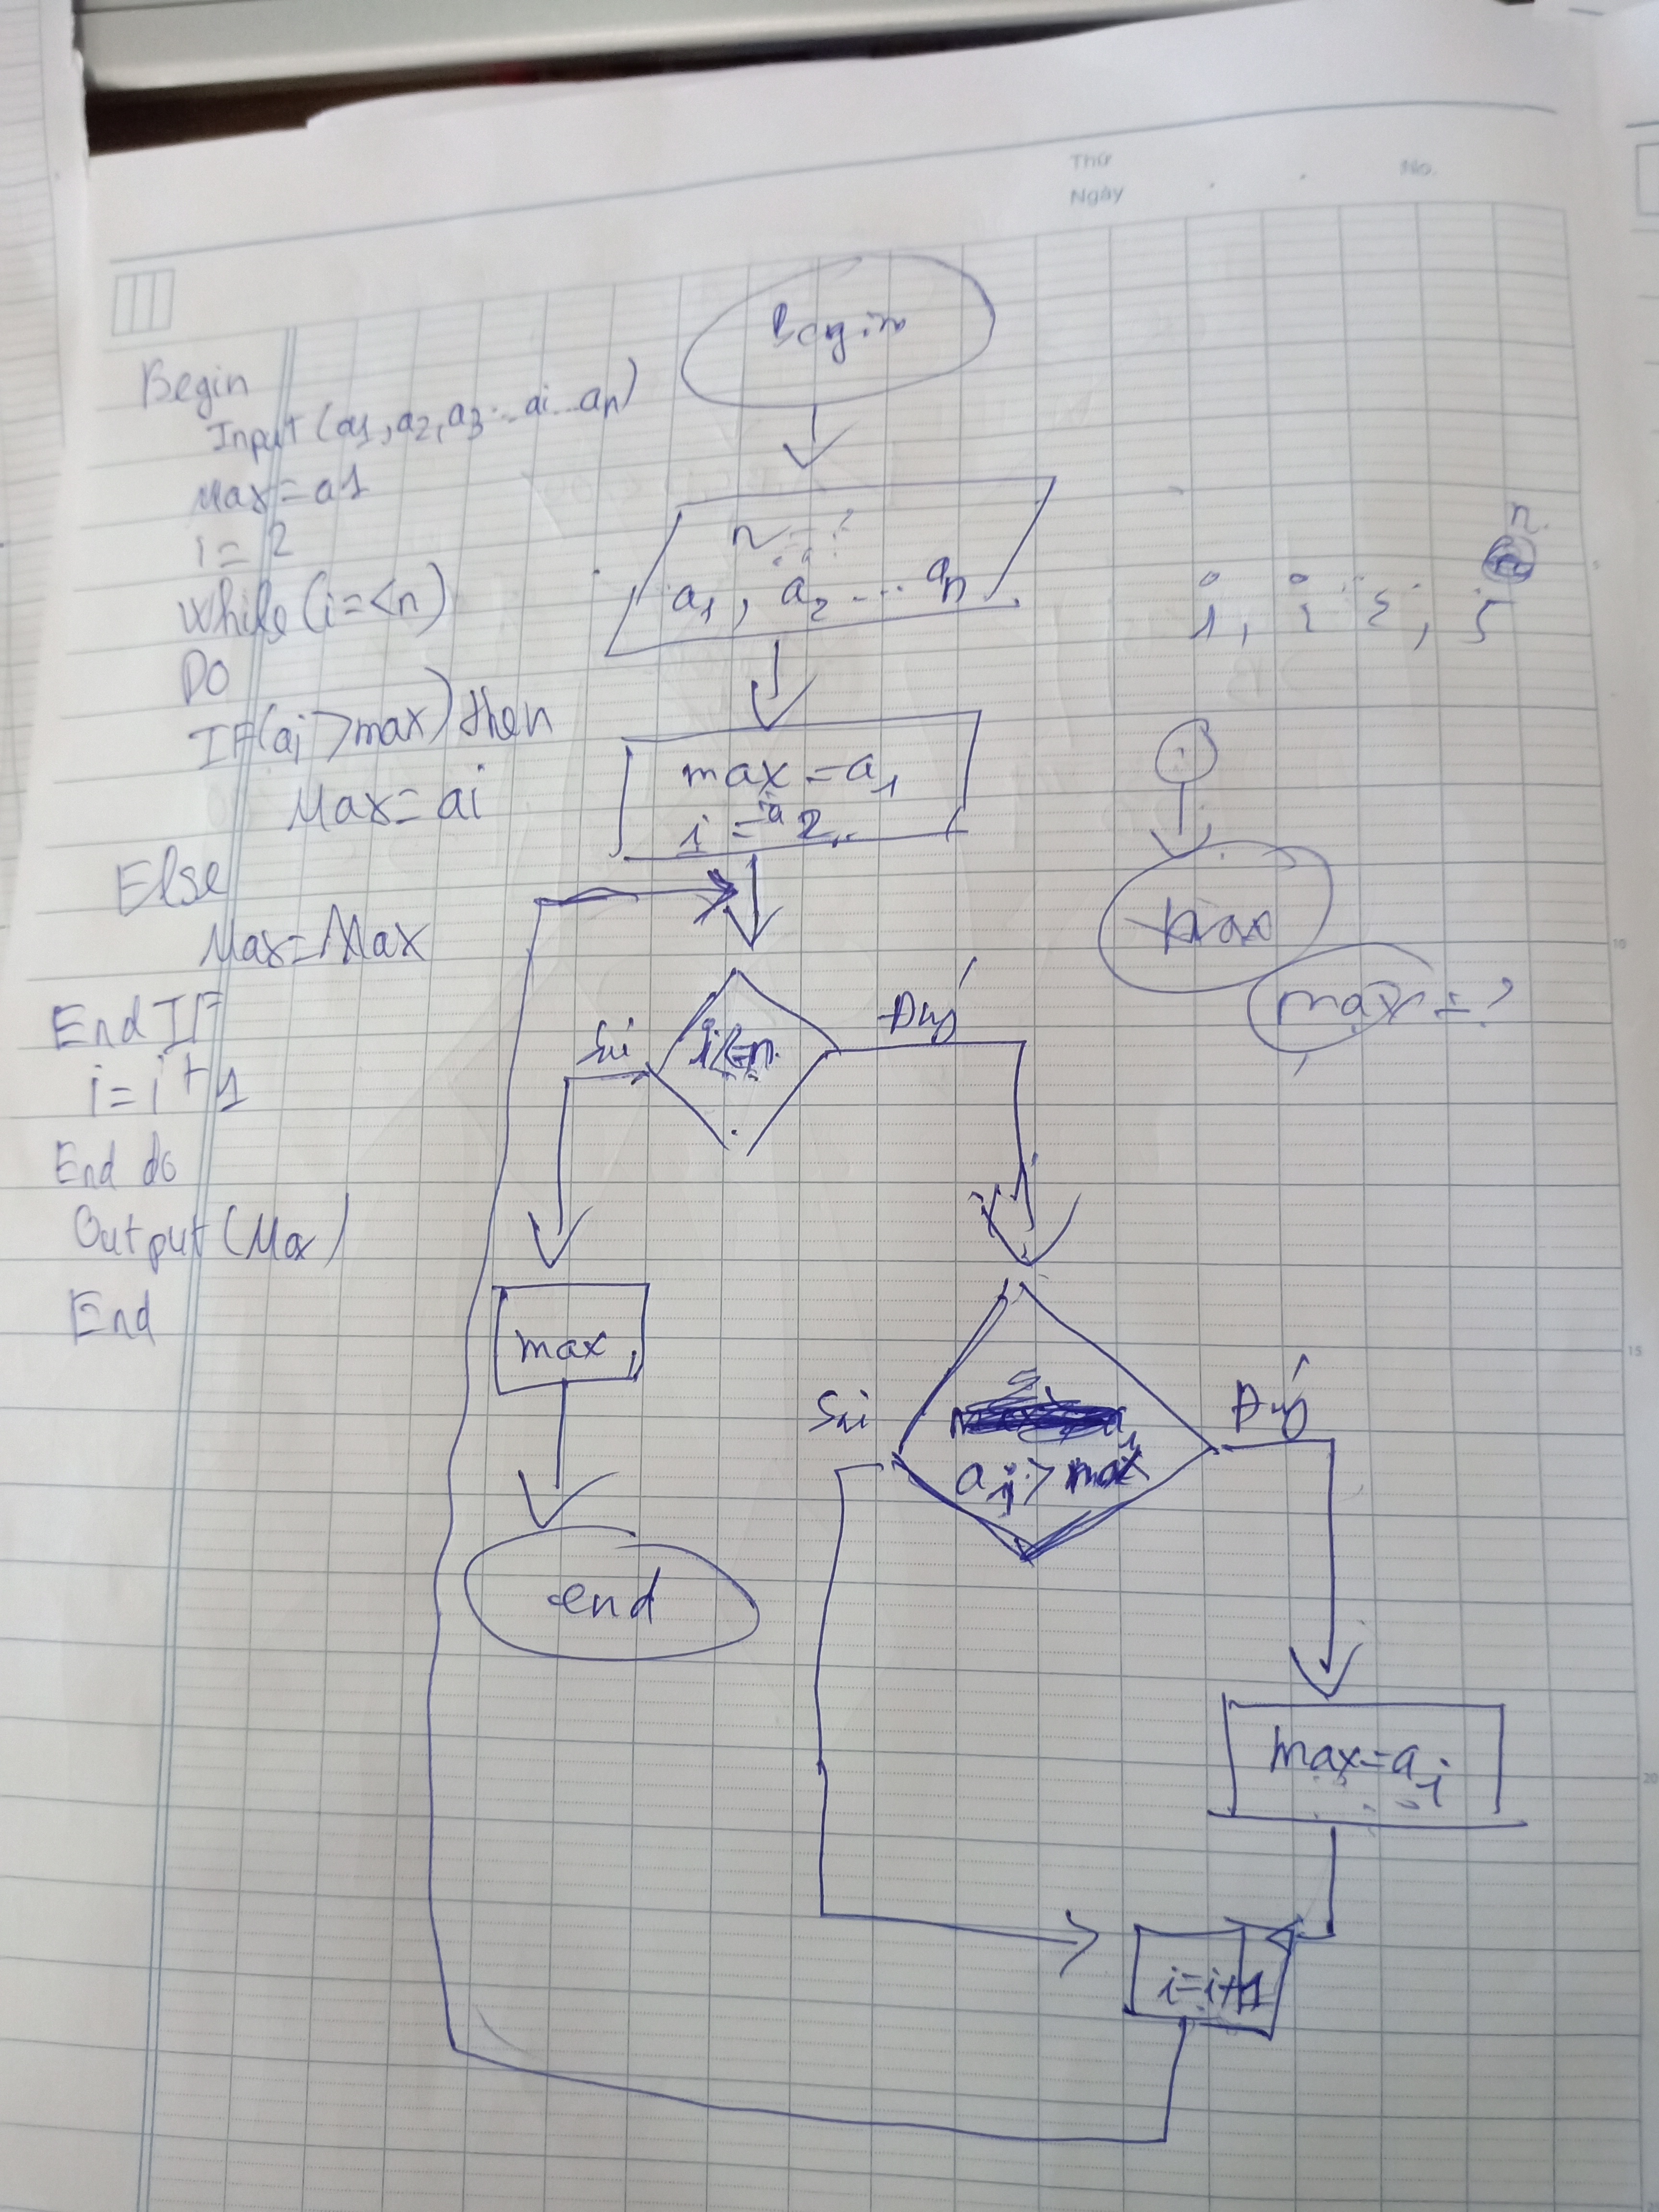 Thứ
Ngày
No.
Begin
Input (a1, a2, a3... ai... an)
Max = a1
i = 2
While (i=<n)
DO
IF(ai > max) then
Max = ai
Else
Max = Max
End IF
i = i + 1
End do
Output (Max)
End
begin
n = ?
a1, a2 ... an
max = a1
i = 2
i<=n
Sai
Đúg
max
end
ai > max
Sai
Đúg
max = ai
i=i+1
n
max
max = ?
5
10
15
20